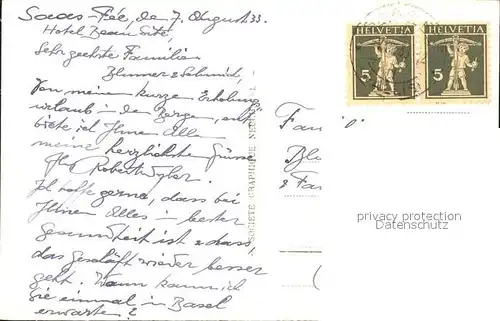 Saas-Fée, den 7. August 33.
Hotel Beau Site,
Sehr geehrte Familien
Blumer & Schmid,
Von meinem kurzen Erholungs
urlaub in den Bergen, ent
biete ich Ihnen Allen
meine herzlichsten Grüsse
Ihr Robert
Ich hoffe gerne, dass bei
Ihnen Alles in bester
Gesundheit ist & dass
das Geschäft wieder besser
geht. Wann kann ich
Sie einmal in Basel
erwarten?
SOCIETE GRAPHIQUE NEUCHATEL
HELVETIA HELVETIA
5 5
Fam
Bl
& Fa
privacy protection
Datenschutz